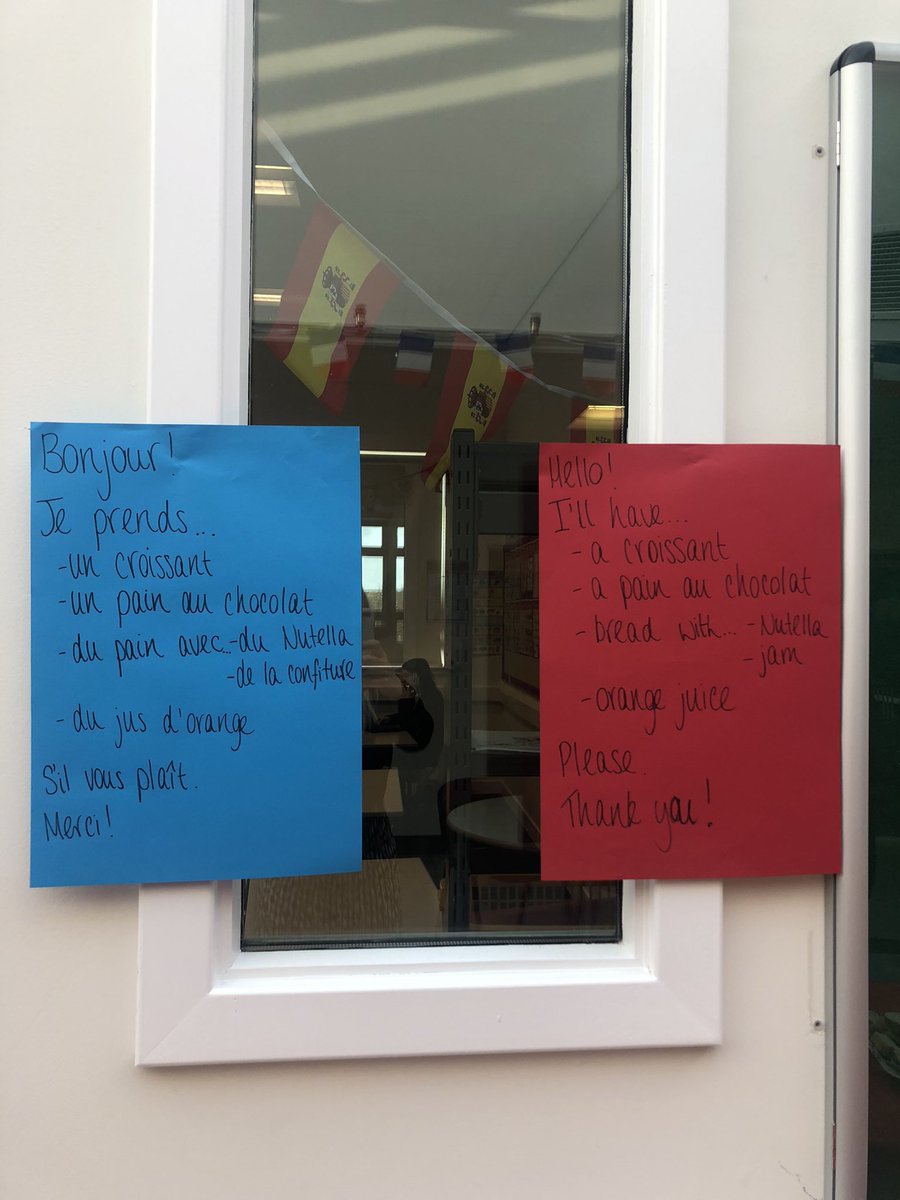 Bonjour!
Je prends...
-un croissant
-un pain au chocolat
-du pain avec...-du Nutella
-de la confiture
-du jus d'orange
S'il vous plaît.
Merci!
Hello!
I'll have...
-a croissant
-a pain au chocolat
-bread with... -Nutella
-jam
-orange juice
Please.
Thank you!